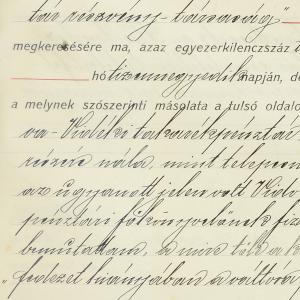 tár részvény-társaság"
megkeresésére ma, azaz egyezerkilenczszáz
hó tizennegyedik napján, de
a melynek szószerinti másolata a tulsó oldalo
va-Vidéki takarékpénztár
részére nála, mint telepese
az ugyanott jelen volt Vidé
pénztári főkönyvelőnek fize
bemutattam, a mire tőle a k
"fedezet hiányjában a váltó